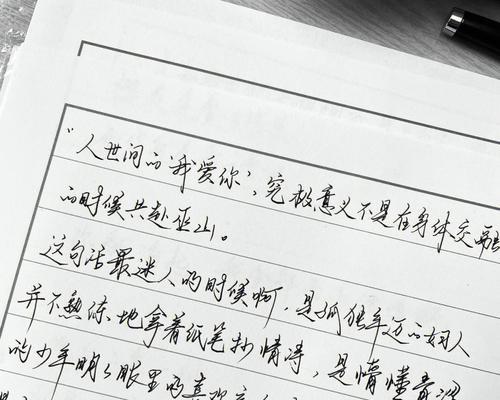 “人世间的‘我爱你’，究极意义不是在身体交融
的时候共赴巫山。
这句话最迷人的时候啊，是孤独年迈的妇人
并不熟练地拿着纸笔抄情诗，是懵懂青涩
的少年明明眼里的喜欢